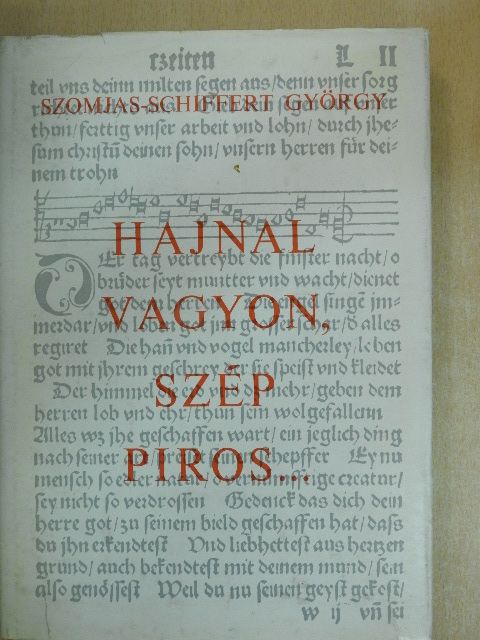 rzeiten L II
teil vns deinn milten segen aus/denn vnser sorg
SZOMJAS-SCHIFFERT GYÖRGY
thun/fertig vnser arbeit vnd lohn/durch jhe-
sum christū deinen sohn/vnsern herren für dei-
nem trohn
HAJNAL
Er tag vertreybt die finster nacht/o
brüder seyt muntter vnd wacht/dienet
got dem herren
VAGYON,
merdar/vnd loben got jnn grosser schar/d̄ alles
regiret Die han̄ vnd vogel mancherley/loben
got mit jhrem geschrey der sie speist vnd kleidet
SZÉP
Der himmel die erd vnd das mehr/geben dem
herren lob vnd ehr/thun sein wolgefallenn
Alles wz jhe geschaffen wart/ein jeglich ding
nach seiner schepffer Ey nu
PIROS...
mensch so edler natur creatur/
sey nicht so verdrossen Gedenck das dich dein
herre got/zu seinem bield geschaffen hat/dass
du jhn erkendtest Vnd liebhettest aus hertzen
grund/auch bekendtest mit deinem mund/sein
also genössest Weil du nu seinen geyst gekost/
w ij vn̄ sei